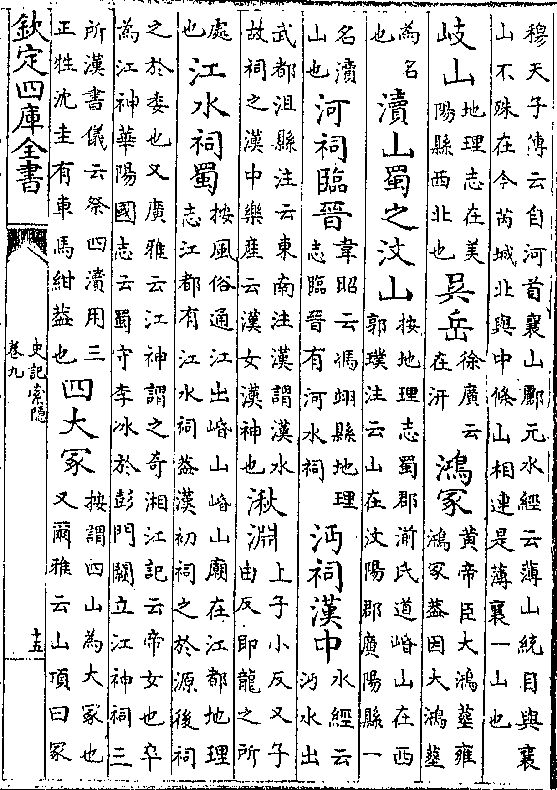 穆天子傳云自河首襄山酈元水經云薄山統目與襄
山不殊在今芮城北與中條山相連是薄襄一山也
岐山地理志在美陽縣西北也吳岳徐廣云在汧鴻冢黃帝臣大鴻塟雍鴻冢葢因大鴻塟
為名也瀆山蜀之汶山按地理志蜀郡湔氐道㟭山在西郭璞注云山在汶陽郡廣陽縣一
名瀆山也河祠臨晉韋昭云馮翊縣地理志臨晉有河水祠沔祠漢中水經云沔水出
武都沮縣注云東南注漢謂漢水故祠之漢中樂産云漢女漢神也湫淵上子小反又子由反即龍之所
處也江水祠蜀按風俗通江出㟭山㟭山廟在江都地理志江都有江水祠葢漢初祠之於源後祠
之於委也又廣雅云江神謂之奇湘江記云帝女也卒
為江神華陽國志云蜀守李冰於彭門闕立江神祠三
所漢書儀云祭四瀆用三正牲沈圭有車馬紺葢也四大冢按謂四山為大冢也又爾雅云山頂曰冢
欽定四庫全書
史記索隱
卷九
十五